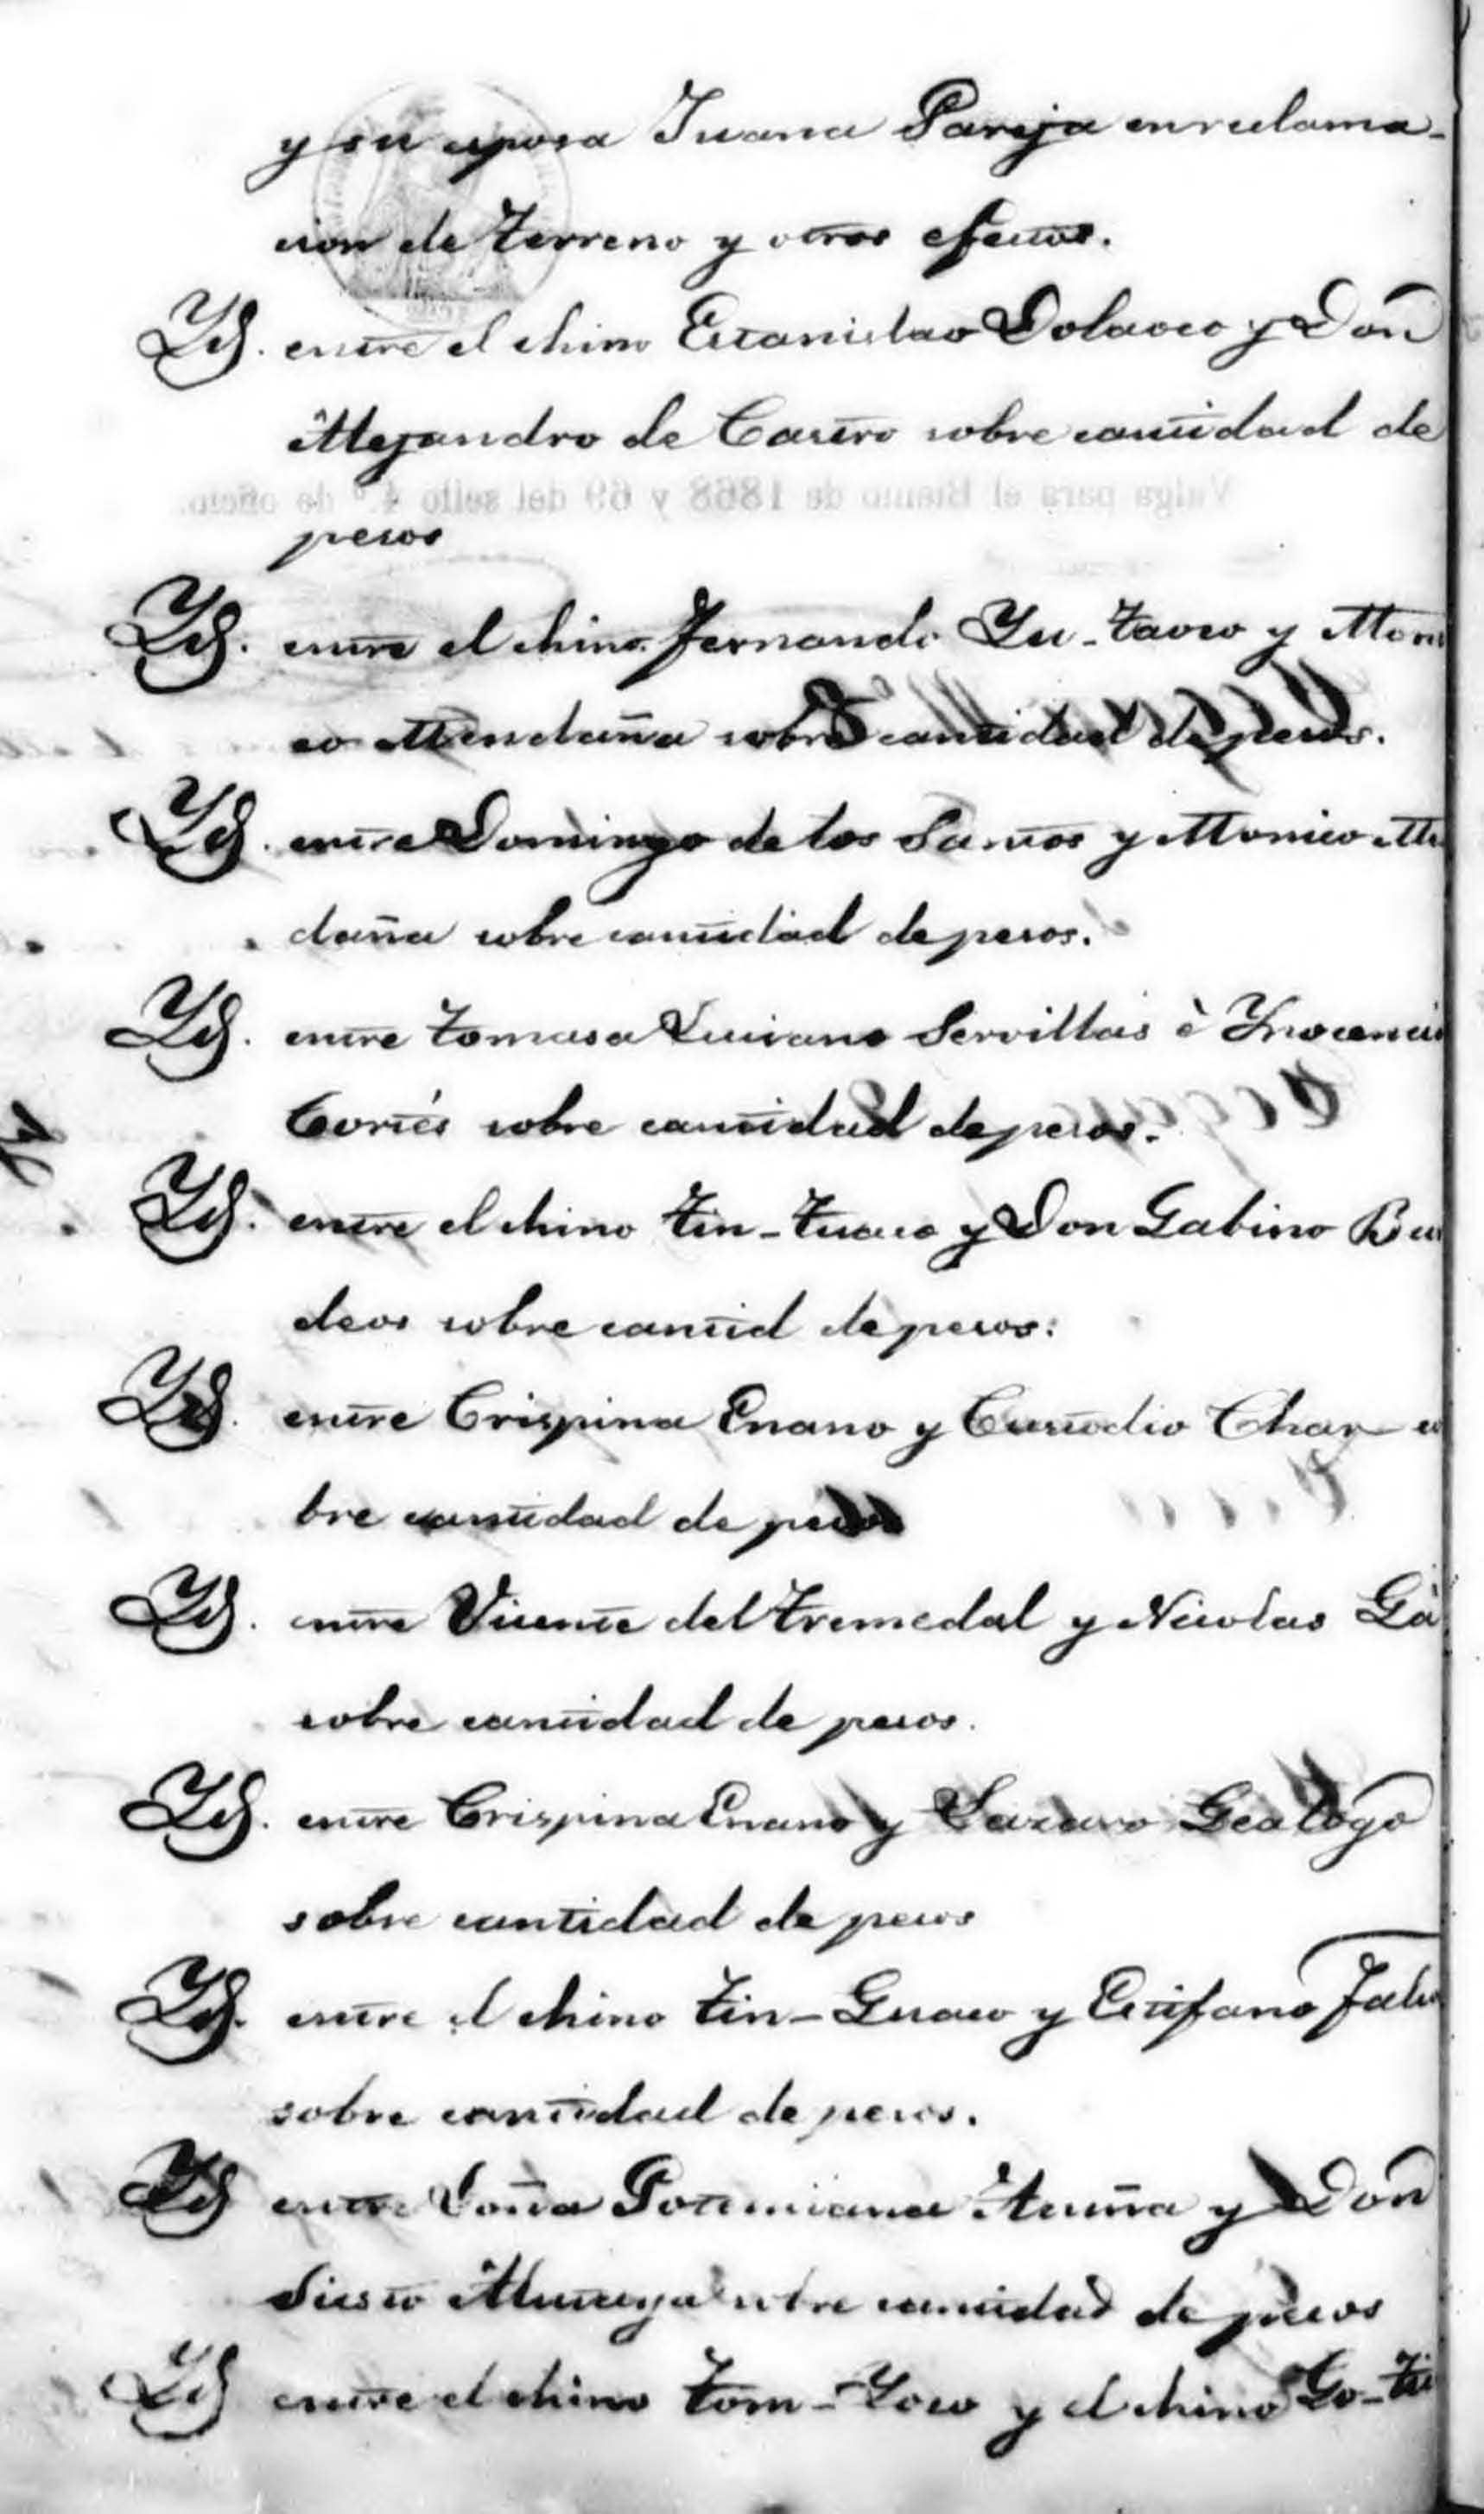 y su esposa Juana Pareja en reclama-
cion de terreno y otros efectos.
Yd. entre el chino Estanislao Dolaoco y Don
Alejandro de Castro sobre cantidad de
Valga para el Bienio de 1868 y 69 del sello 4.º de oficio.
pesos
Yd. entre el chino Fernando Yu-Taoco y Moni
co Mendaña sobre cantidad de pesos.
Yd. entre Domingo de los Santos y Monico Me
daña sobre cantidad de pesos.
Yd. entre Tomasa Luciano Servillas è Ynocencio
Cortés sobre cantidad de pesos.
Yd. entre el chino Tin-Tuaco y Don Gabino Bu
deos sobre cantid de pesos.
Yd. entre Crispina Enano y Custodio Char so
bre cantidad de pesos
Yd. entre Vicente del Tremedal y Nicolas Gà
sobre cantidad de pesos.
Yd. entre Crispina Enano y Lazaro Gealogo
sobre cantidad de pesos
Yd. entre el chino Tin-Guaco y Epifano
sobre cantidad de pesos.
Yd entre Doña Potenciana Acuña y Don
Sisto sobre cantidad de pesos
Yd entre el chino Tom-Yoco y el chino Go-